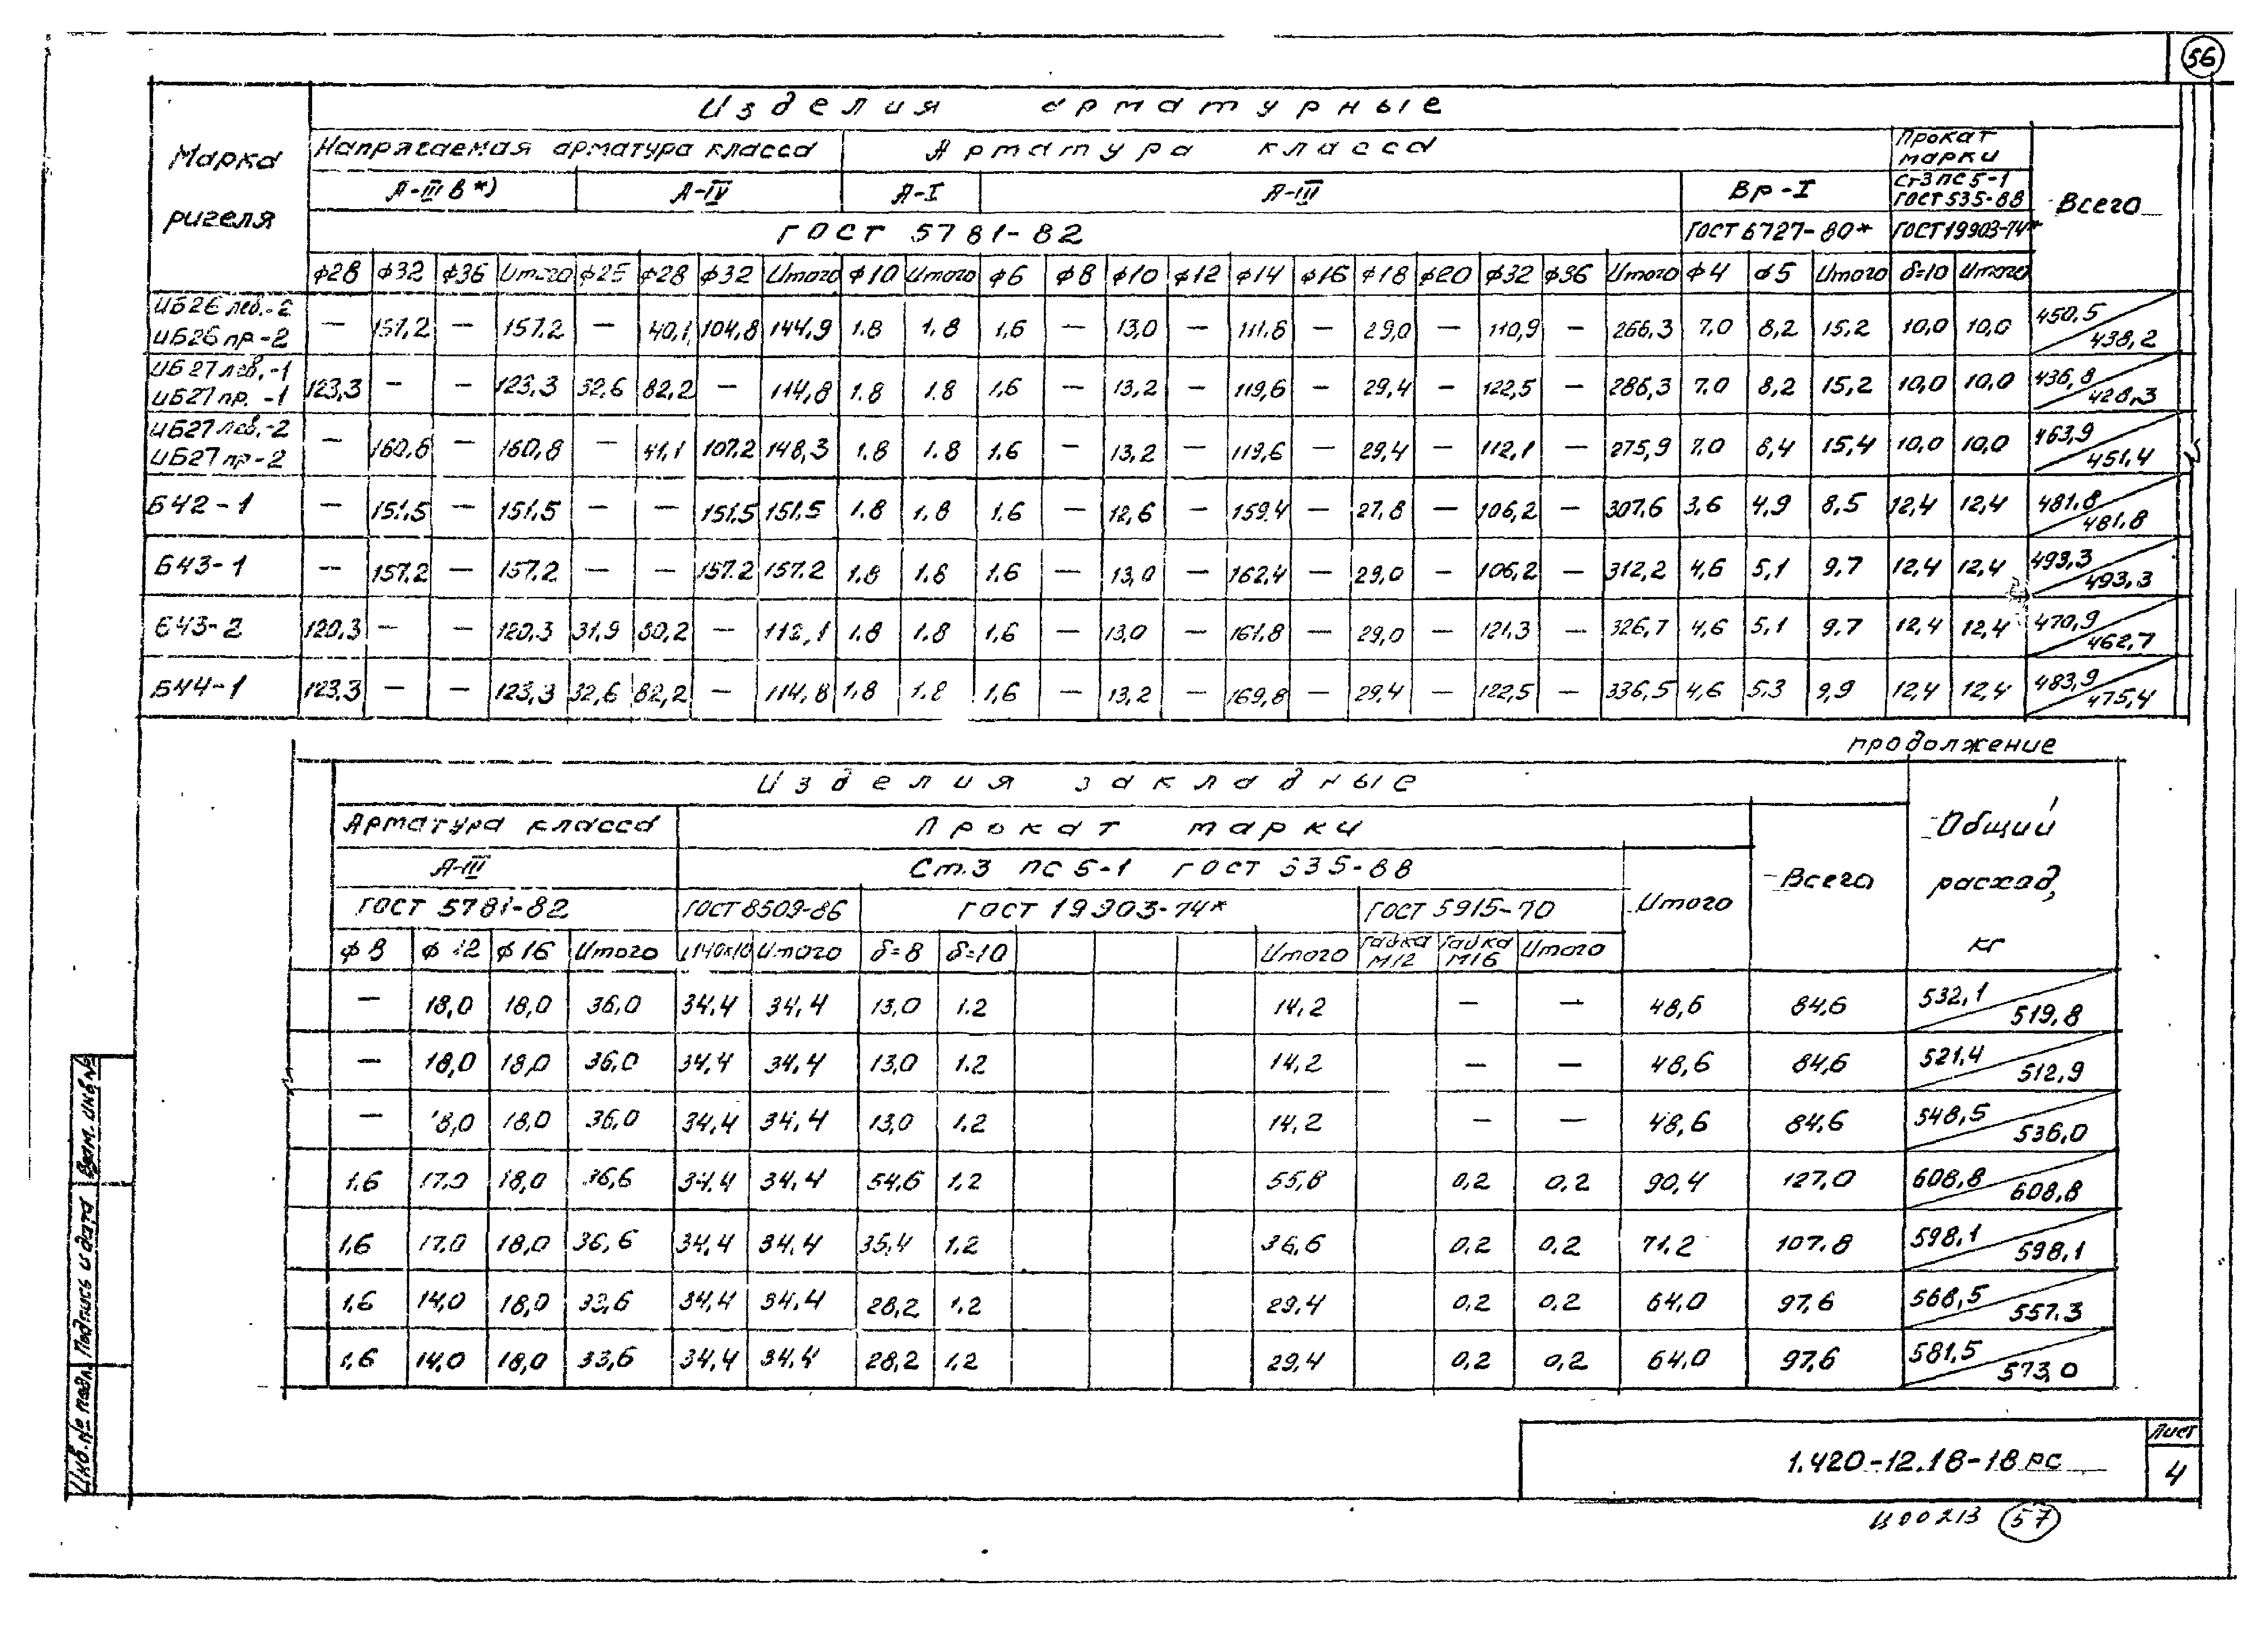 56
Изделия арматурные
Марка ригеля
Напрягаемая арматура класса
Арматура класса
Прокат марки
Всего
А-IIIв*)
А-IV
А-I
А-III
Вр-I
Ст3пс5-1 ГОСТ 535-88
ГОСТ 5781-82
ГОСТ 6727-80*
ГОСТ 19903-74*
ф28 ф32 ф36 Итого ф25 ф28 ф32 Итого ф10 Итого ф6 ф8 ф10 ф12 ф14 ф16 ф18 ф20 ф32 ф36 Итого ф4 ф5 Итого δ=10 Итого
ИБ26лев.-2
ИБ26пр-2
— 157.2 — 157.2 — 40,1 104,8 144,9 1.8 1.8 1,6 — 13,0 — 111.8 — 29,0 — 110,9 — 266,3 7,0 8,2 15,2 10,0 10,0 450,5 / 438,2
ИБ27лев.-1
ИБ27пр.-1
123,3 — — 123,3 32,6 82,2 — 114,8 1.8 1.8 1,6 — 13,2 — 119,6 — 29,4 — 122,5 — 286,3 7.0 8,2 15,2 10,0 10,0 436,8 / 428,3
ИБ27лев.-2
ИБ27пр-2
— 160,8 — 160,8 — 41,1 107.2 148,3 1.8 1.8 1.6 — 13,2 — 119,6 — 29,4 — 112,1 — 275,9 7,0 8,4 15,4 10,0 10,0 463,9 / 451,4
Б42-1
— 151,5 — 151,5 — — 151,5 151,5 1.8 1.8 1.6 — 12,6 — 159.4 — 27,8 — 106,2 — 307.6 3,6 4,9 8,5 12,4 12,4 481,8 / 481.8
Б43-1
— 157.2 — 157.2 — — 157.2 157.2 1.8 1.8 1.6 — 13,0 — 162,4 — 29,0 — 106,2 — 312,2 4,6 5,1 9.7 12,4 12,4 493,3 / 493,3
Б43-2
120,3 — — 120,3 31,9 80,2 — 112,1 1.8 1.8 1,6 — 13,0 — 161,8 — 29,0 — 121,3 — 326,7 4,6 5,1 9.7 12,4 12,4 470,9 / 462,7
Б44-1
123,3 — — 123,3 32,6 82,2 — 114,8 1,8 1.8 1,6 — 13,2 — 169,8 — 29,4 — 122,5 — 336,5 4,6 5.3 9,9 12,4 12,4 483,9 / 475,4
продолжение
Изделия закладные
Арматура класса
Прокат марки
Всего
Общий расход, кг
А-III
Ст.3 пс5-1 ГОСТ 535-88
Итого
ГОСТ 5781-82
ГОСТ 8509-86
ГОСТ 19903-74*
ГОСТ 5915-70
ф8 ф12 ф16 Итого L140х10 Итого δ=8 δ=10 Итого Гайка М12 Гайка М16 Итого
— 18,0 18,0 36,0 34,4 34,4 13,0 1.2 14,2 — — 48,6 84,6 532,1 / 519,8
— 18,0 18,0 36,0 34,4 34,4 13,0 1.2 14,2 — — 48,6 84,6 521,4 / 512,9
— 18,0 18,0 36,0 34,4 34,4 13,0 1.2 14,2 — — 48,6 84,6 548,5 / 536,0
1.6 17.0 18,0 36,6 34.4 34,4 54,6 1,2 55,8 0,2 0,2 90,4 127,0 608,8 / 608,8
1,6 17,0 18,0 36,6 34,4 34,4 35,4 1,2 36,6 0,2 0,2 71,2 107.8 598,1 / 598,1
1,6 14,0 18,0 33,6 34,4 34,4 28,2 1,2 29,4 0,2 0,2 64,0 97,6 568,5 / 557.3
1,6 14,0 18,0 33,6 34,4 34,4 28,2 1,2 29,4 0,2 0,2 64,0 97,6 581,5 / 573,0
Инв.№ подл. Подпись и дата Взам. инв.№
1.420-12.18-18РС
Лист
4
Ц00213 57